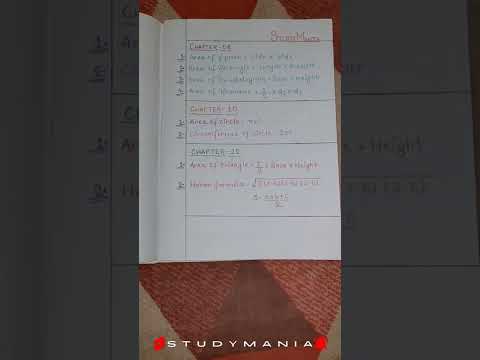 CHAPTER-08
1. Area of square = side x side
2. Area of Rectangle = Length x Breadth
3. Area of Parallelogram = Base x Height
4. Area of Rhombus = 1/2 x d1 x d2
CHAPTER-10
1. Area of circle = πr²
2. Circumference of circle 2πr
CHAPTER-12
1. Area of triangle = 1/2 x Base x Height
2. Heron formula = √S(S-a)(S-b)(S-c)
S = a+b+c/2
x Height
STUDYMANIA